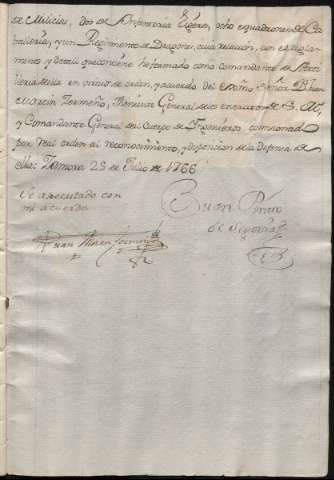 de Milicias, dos de Infanteria Ligera, ocho esquadrones de Ca
balleria, y un Regimento de Dragones, cuia relacion, con el regla
mento y detall que conviene he formado como Comandante de Arti
lleria de ella en virtud de orden, y acuerdo del Exmo Señor Dn Juan
Martin Zermeño, Theniente General de los Exercitos de S. M,
y Comandante General del Cuerpo de Ingenieros comisionado
por real orden al reconocimiento, y disposicion de la defensa de
ella: Zamora 23 de Julio de 1766
Se a executado con
mi acuerdo
Juan Martin Zermeño
Juan
de Segovia